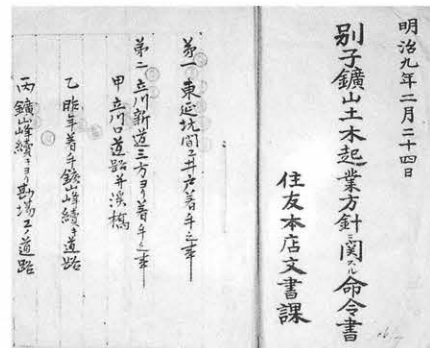 明治九年二月二十四日
別子鑛山土木起業方針ニ関スル命令書
住友本店文書課
第一 東延坑間工井戸着手之事
第二 立川新道三方ヨリ着手之事
甲 立川口道路并渓橋
乙 昨年着手鑛山峰續キ道路
丙 鑛山峰續キヨリ勘場エノ道路